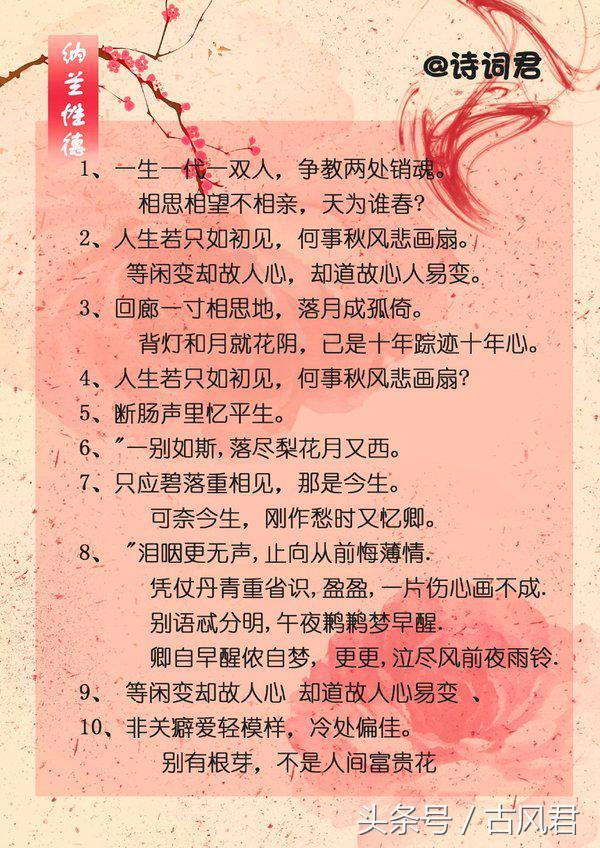 纳兰性德
@诗词君
1、一生一代一双人，争教两处销魂。
相思相望不相亲，天为谁春?
2、人生若只如初见，何事秋风悲画扇。
等闲变却故人心，却道故心人易变。
3、回廊一寸相思地，落月成孤倚。
背灯和月就花阴，已是十年踪迹十年心。
4、人生若只如初见，何事秋风悲画扇?
5、断肠声里忆平生。
6、"一别如斯,落尽梨花月又西。
7、只应碧落重相见，那是今生。
可奈今生，刚作愁时又忆卿。
8、"泪咽更无声,止向从前悔薄情.
凭仗丹青重省识,盈盈,一片伤心画不成.
别语忒分明,午夜鹣鹣梦早醒.
卿自早醒侬自梦, 更更,泣尽风前夜雨铃.
9、 等闲变却故人心 却道故人心易变 、
10、非关癖爱轻模样，冷处偏佳。
别有根芽，不是人间富贵花
头条号 / 古风君